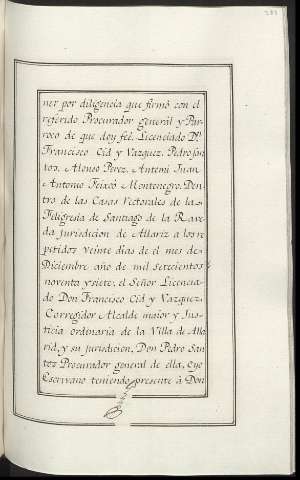 ner por diligencia que firmó con el
referido Procurador general y Par-
roco de que doy feé. Licenciado Dn.
Francisco Cid y Vazquez. Pedro San
tos. Alonso Perez. Antemi Juan
Antonio Feixoó Montenegro. Den-
tro de las Casas Vectorales de la
Filigresia de Santiago de la Rave
da jurisdicion de Allariz a los re
pitidos veinte dias de el mes de
Diciembre año de mil setecientos
noventa y siete, el Señor Licencia
do Don Francisco Cid y Vazquez,
Corregidor Alcalde maior y Jus-
ticia ordinaria de la Villa de Alla
rid, y su jurisdicion, Don Pedro San
tos Procurador general de ella, eyo
Escrivano teniendo presente á Don